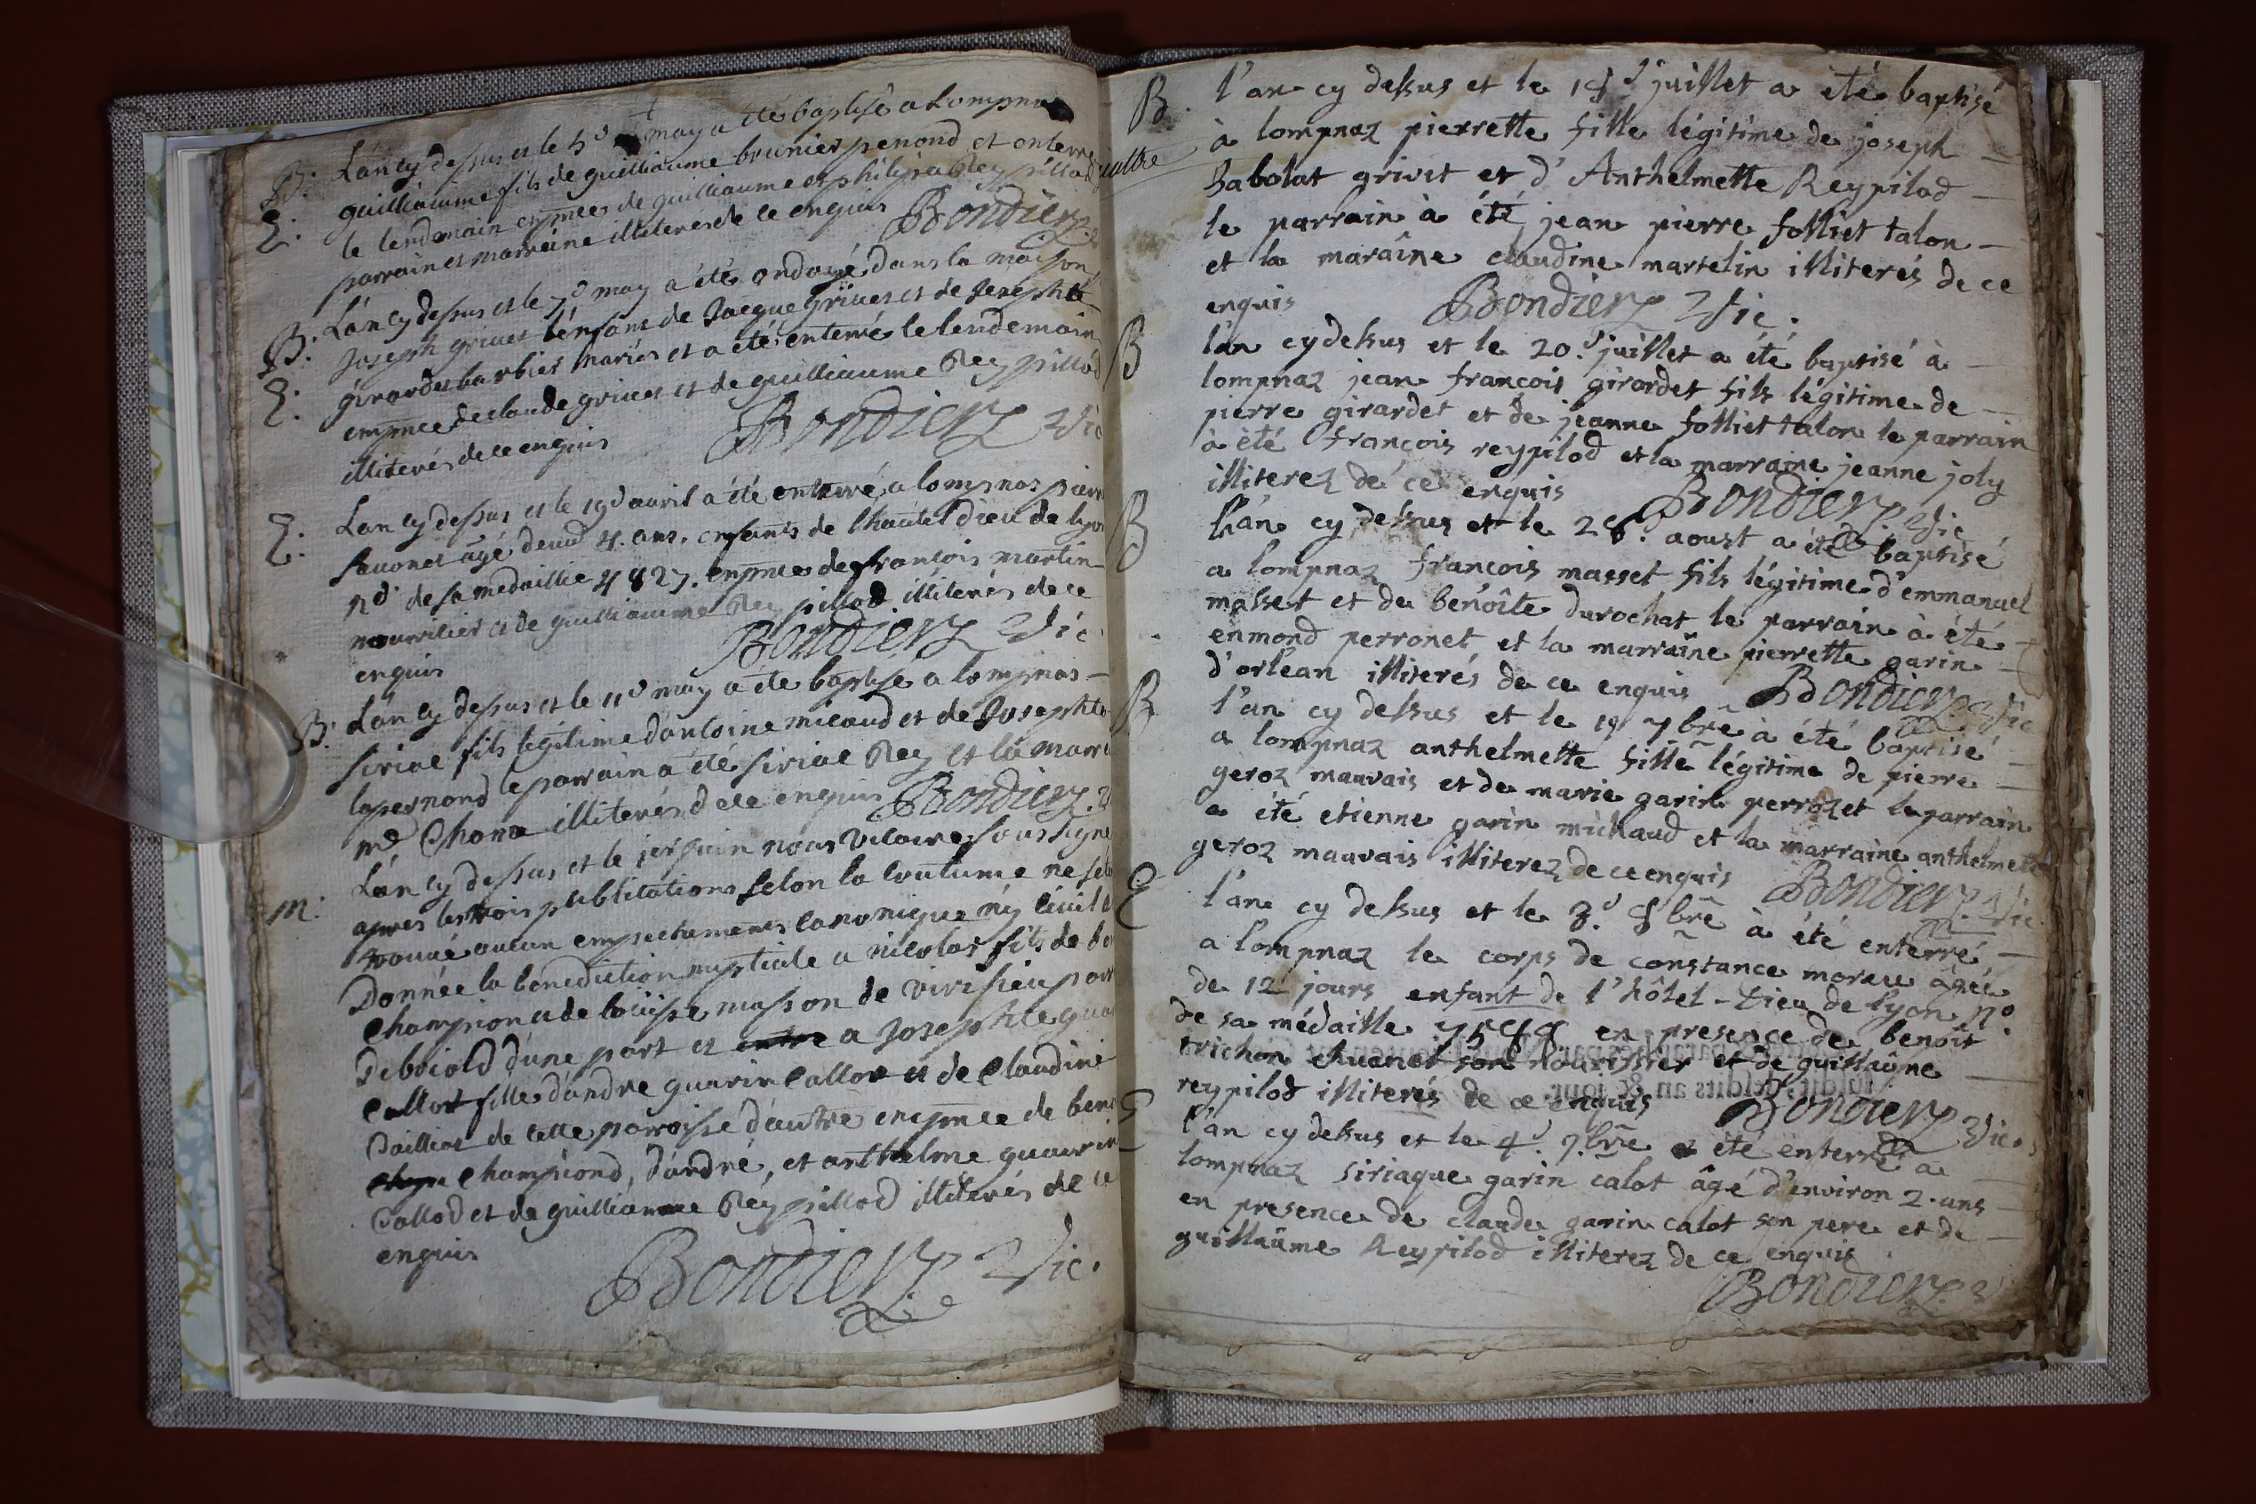 B. L'an cy dessus et le 5d may a été baptisé a Lompnas
E. guilliaume fils de guilliaume brunier penond et enterré
le lendemain enpnce de guilliaume et philipa Rey pillod
parrain et marreine illiterés de ce enquis Bondierz
B. L'an cy dessus et le 7d may a été ondoyé dans la maison
Joseph grivet l'enfant de Jacque grivet et de Josephte
E. girardet barbier mariés et a été enterré le lendemain
enpnce de claude grivet et de guilliaume Rey pillod
illiterés de ce enquis Bondierz Vic
E. L'an cy dessus et le 19d avril a été enterré a lompnas pierre
savonet agé de 4. ans. enfants de l'hautel dieu de lyon
nd. de sa medaillie 4827. enpnce de francois martin
nourrilier et de guilliaume Rey pillod illiterés de ce
enquis Bondierz Vic
B. L'an cy dessus et le 11d may a été baptisé a lompnas
siriac fils legitime d'antoine micaud et de Josephte
lapernond le parrain a été siriac Rey et la marre
me Chona illiterés de ce enquis Bondierz.
m. L'an cy dessus et le 1er juin nous vicaire soussigné
apres les trois publications selon la coutume ne s'et
trouvé aucun empechements canonique ny civil
Donnée la benediction nuptiale a nicolas fils de
Champion et de loüise masson de virisieu par
Deboiold d'une part et entre a Josephte guar
Callot fille d'andre guarin Callot et de Claudine
Cailliat de cette parroisse d'autre enpnce de ben
Championd, d'andré, et anthelme guarrin
Callod et de guilliaume Rey pillod illiterés de ce
enquis
Bondierz Vic.
B. l'an cy dessus et le 18d juillet a été baptisé
à lompnaz pierrette fille légitime de joseph
babolat grivet et d'Anthelmette Reypilod
le parrain à été jean pierre folliet talon
et la maraine claudine martelin illiterés de ce
enquis Bondierz Vic.
B l'an cy dessus et le 20.d juillet a été baptisé à
lompnaz jean françois girardet fils légitime de
pierre girardet et de jeanne folliet talon le parrain
à été françois reypilod et la marraine jeanne joly
illiterez de ce enquis Bondierz Vic
B l'an cy dessus et le 28.d aoust a été baptisé
a lompnaz françois masset fils légitime d'emmanuel
masset et de benoîte durochat le parrain à été
enmond perronet et la marraine pierrette garin
d'orléan illiterés de ce enquis Bondierz Vic
B l'an cy dessus et le 19 7bre à été baptisé
a lompnaz anthelmette fille légitime de pierre
geroz mauvais et de marie garin perrozet le parrain
a été etienne garin michaud et la marraine anthelmette
geroz mauvais illiterez de ce enquis Bondierz. Vic.
E l'an cy dessus et le 3.d 8bre à été enterré
a lompnaz le corps de constance moreau âgée
de 12 jours enfant de l'hôtel-Dieu de lyon no.
de sa médaille en presence de benoît
trichon chuenet son nourissier et de guillaûme
reypilod illiterés de ce enquis Bondierz Vic.
l'an cy dessus et le 4.d 9.bre a été enterré a
lompnaz siriaque garin calot âgé d'environ 2. ans
en presence de claude garin calot son pere et de
guillaûme Reypilod illiterez de ce enquis
Bondierz.